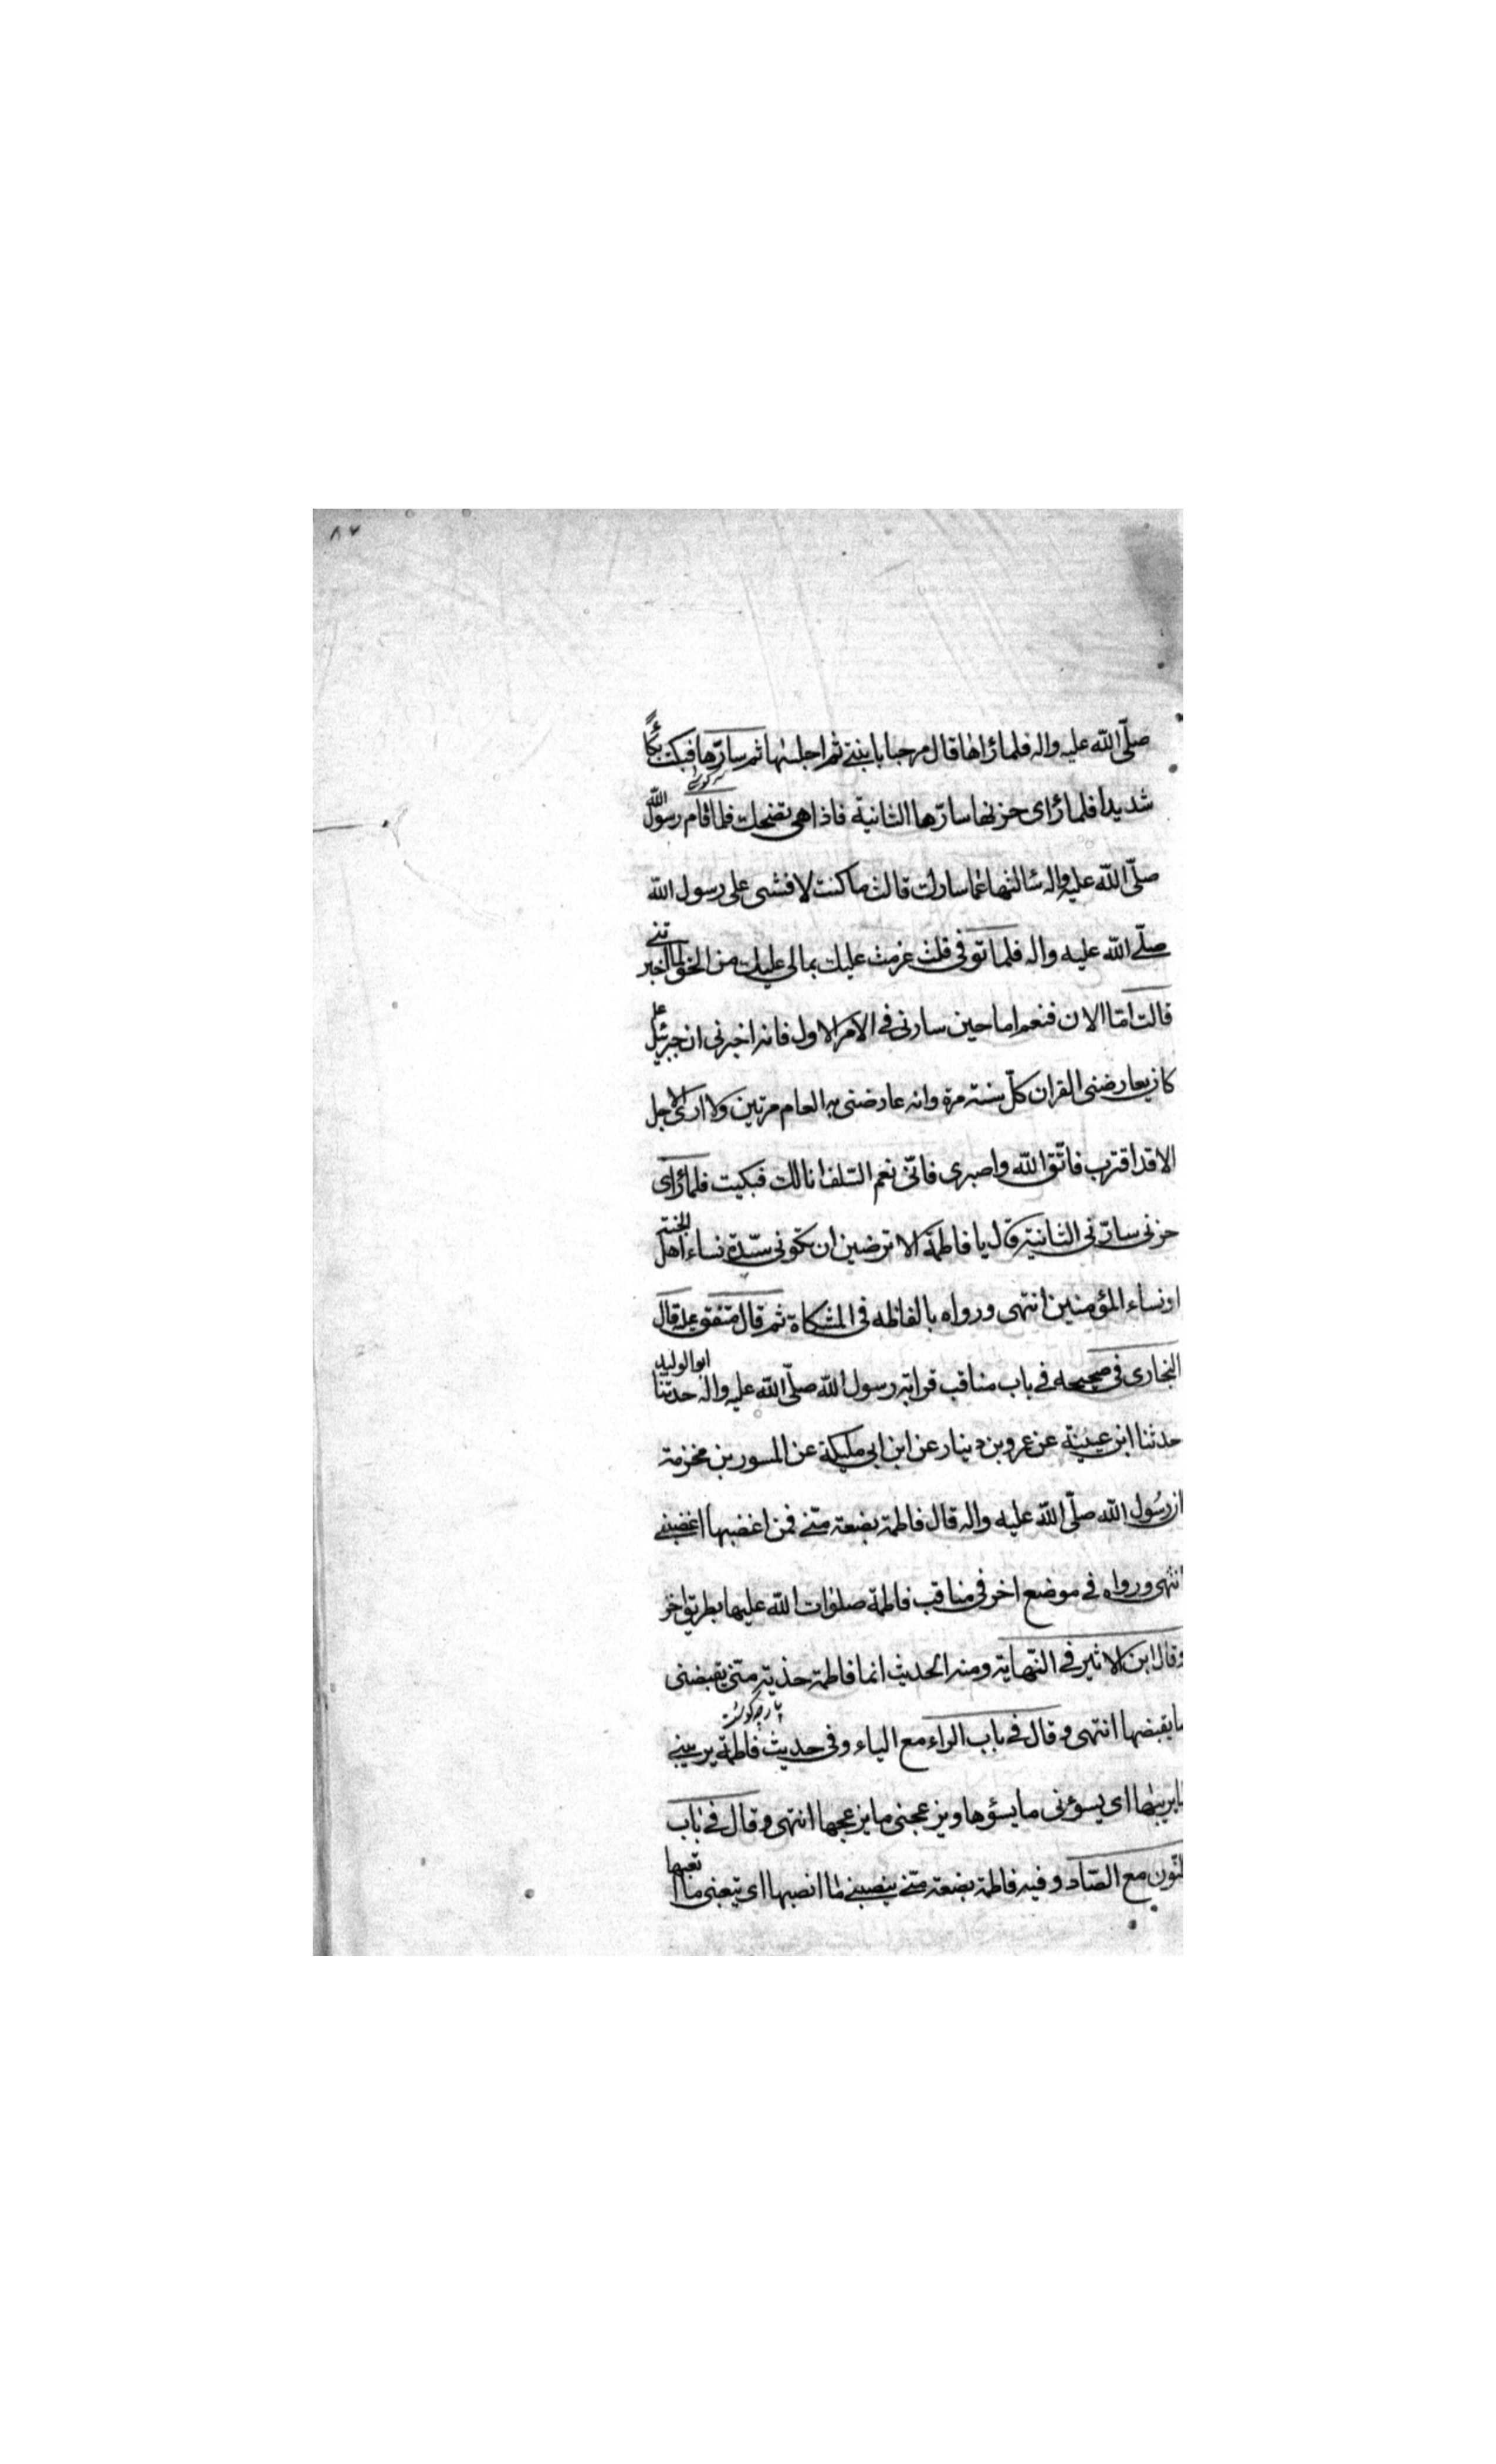 ٨٧
صلّى اللّه عليه واله فلما رٰاهٰا قال مرحبا بابنتي ثم اجلسها ثم سارّها فبكت بكاءً
شديدا فلما رٰاى حزنها سارّها الثانية فاذا هى تضحك فلما قام رسول اللّه
صلّى اللّه عليه واله سٰالتها عما سارك قالت ما كنت لافشى على رسول اللّه
صلّى اللّه عليه واله فلما توفى قلت عزمت عليك بمالى عليك من الحق لما اخبرتنى
قالت امّا الان فنعم اما حين سارنى فى الامر الاول فانه اخبرنى ان جبرئيل ع
كان يعارضنى القران كلّ سنة مرة وانه عارضنى به العام مرتين ولا ارى الاجل
الا قد اقترب فاتّق اللّه واصبرى فانّى نعم السّلف انا لك فبكيت فلما رٰاى
حزنى سارّنى الثانية قال يا فاطمة الا ترضين ان تكونى سيّدة نساء اهل الجنة
او نساء المؤمنين انتهى ورواه بالفاظه فى المشكاة ثم قال متفق عليه قال
البخارى فى صحيحه فى باب مناقب قرابة رسول اللّه صلّى اللّه عليه واله حدثنا ابو الوليد
حدثنا ابن عيينة عن عمرو بن دينار عن ابن ابى مليكة عن المسور بن مخرمة
ان رسُول اللّه صلّى اللّه عليه واله قال فاطمة بضعة منّى فمن اغضبها اغضبنى
انتهى ورواه فى موضع اخر فى مناقب فاطمة صلوات اللّه عليها بطريق اخر
وقال ابن الاثير فى النّهاية ومنه الحديث انما فاطمة حذية منّى يقبضنى
پارچه گوشت
ما يقبضها انتهى وقال فى باب الراء مع الياء وفى حديث فاطمة يريبنى
ما يريبها اى يسؤنى ما يسؤها ويزعجنى ما يزعجها انتهى وقال فى باب
النّون مع الصّاد وفيه فاطمة بضعة منّى ينصبنى مٰا انصبها اى يتعبنى ما اتعبها